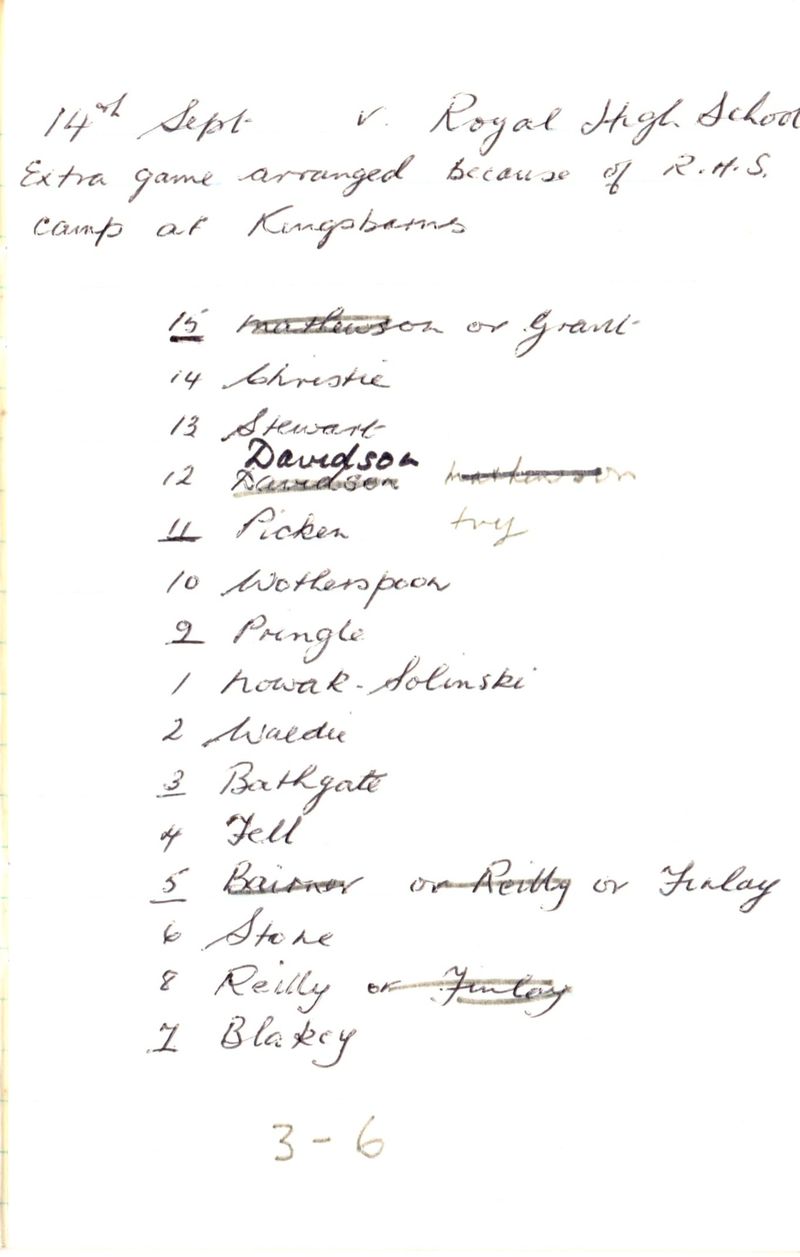 14th Sept v. Royal High School
Extra game arranged because of R.H.S.
camp at Kingsbarns
15 Mathewson or Grant
14 Christie
13 Stewart
Davidson
12 Davidson Mathewson
11 Picken try
10 Wotherspoon
9 Pringle
1 Nowak-Solinski
2 Waldie
3 Bathgate
4 Fell
5 Bairner or Reilly or Finlay
6 Stone
8 Reilly or Finlay
7 Blakey
3 - 6